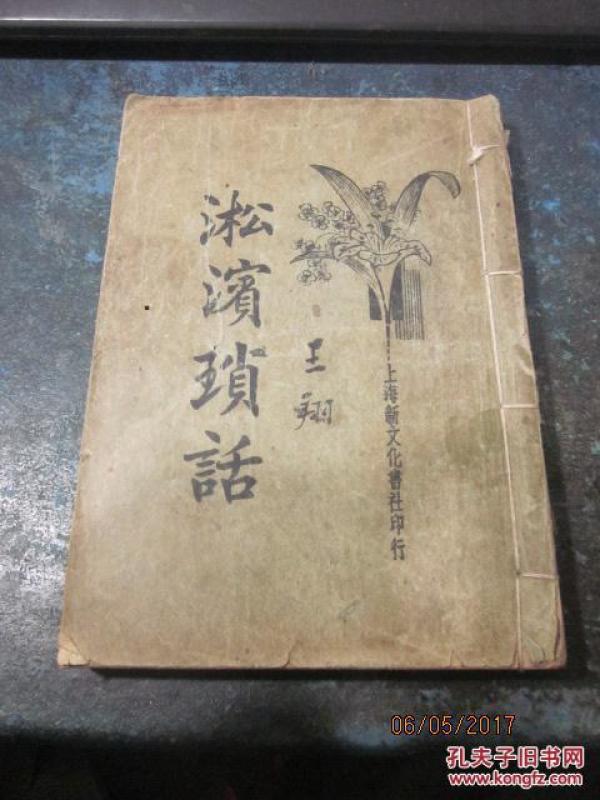 淞濱瑣話
王翔
上海新文化書社印行
06/05/2017
孔夫子旧书网
www.kongfz.com